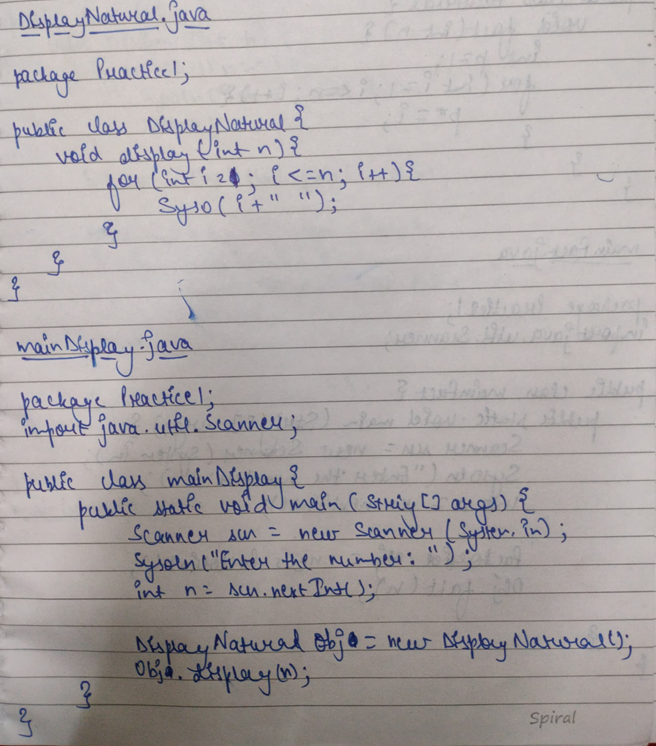 DisplayNatural.java
package Practice1;
public class DisplayNatural {
void display (int n) {
for (int i=1; i<=n; i++) {
Syso( i+" ");
}
}
}
mainDisplay.java
package Practice1;
import java.util.Scanner;
public class mainDisplay {
public static void main (String [] args) {
Scanner scn = new Scanner (System.in);
Sysoln("Enter the number: ");
int n = scn.nextInt();
DisplayNatural obj = new DisplayNatural();
obj.display(n);
}
}
Spiral